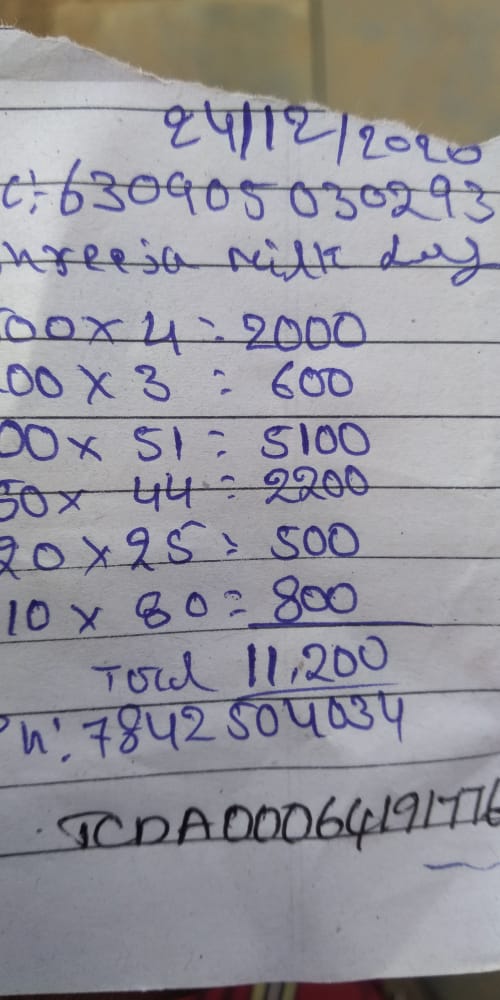 24/12/2020
C: 630905030293
hreeja milk
00 x 4 = 2000
00 x 3 = 600
00 x 51 = 5100
50 x 44 = 2200
20 x 25 = 500
10 x 80 = 800
Total 11,200
Ph: 7842504034